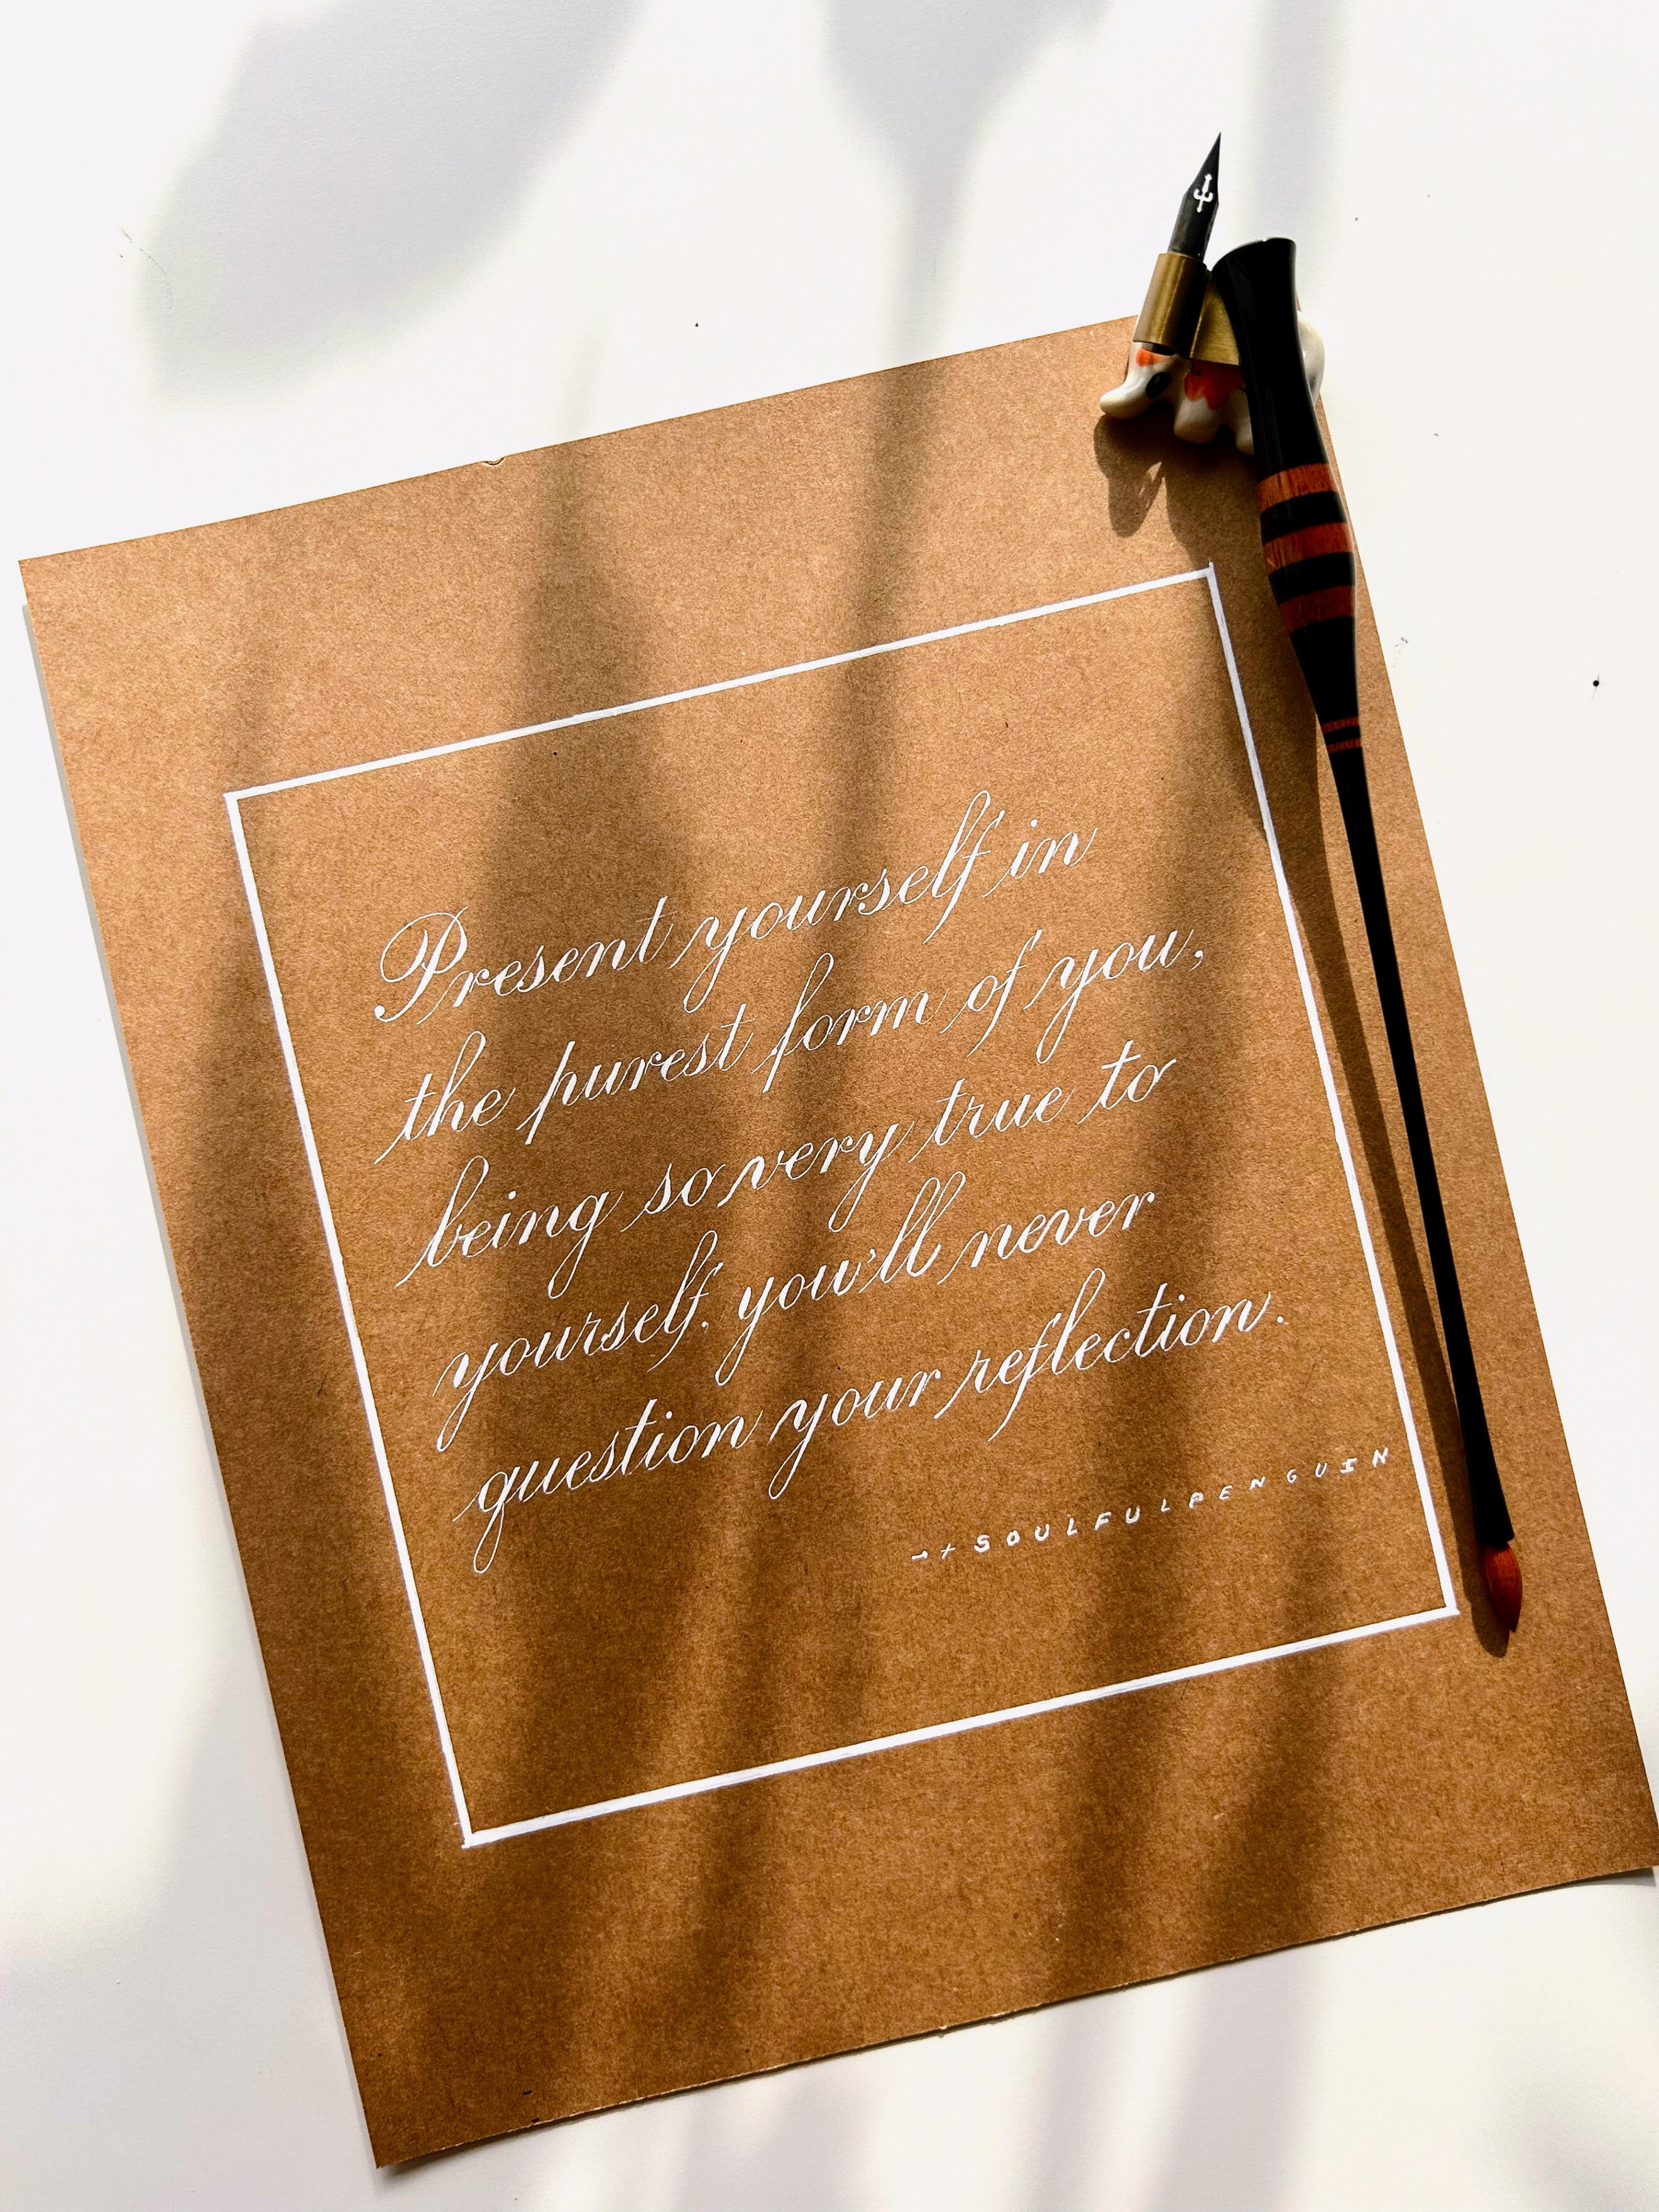 Present yourself in
the purest form of you,
being so very true to
yourself, you'll never
question your reflection.
→+SOULFULPENGUIN